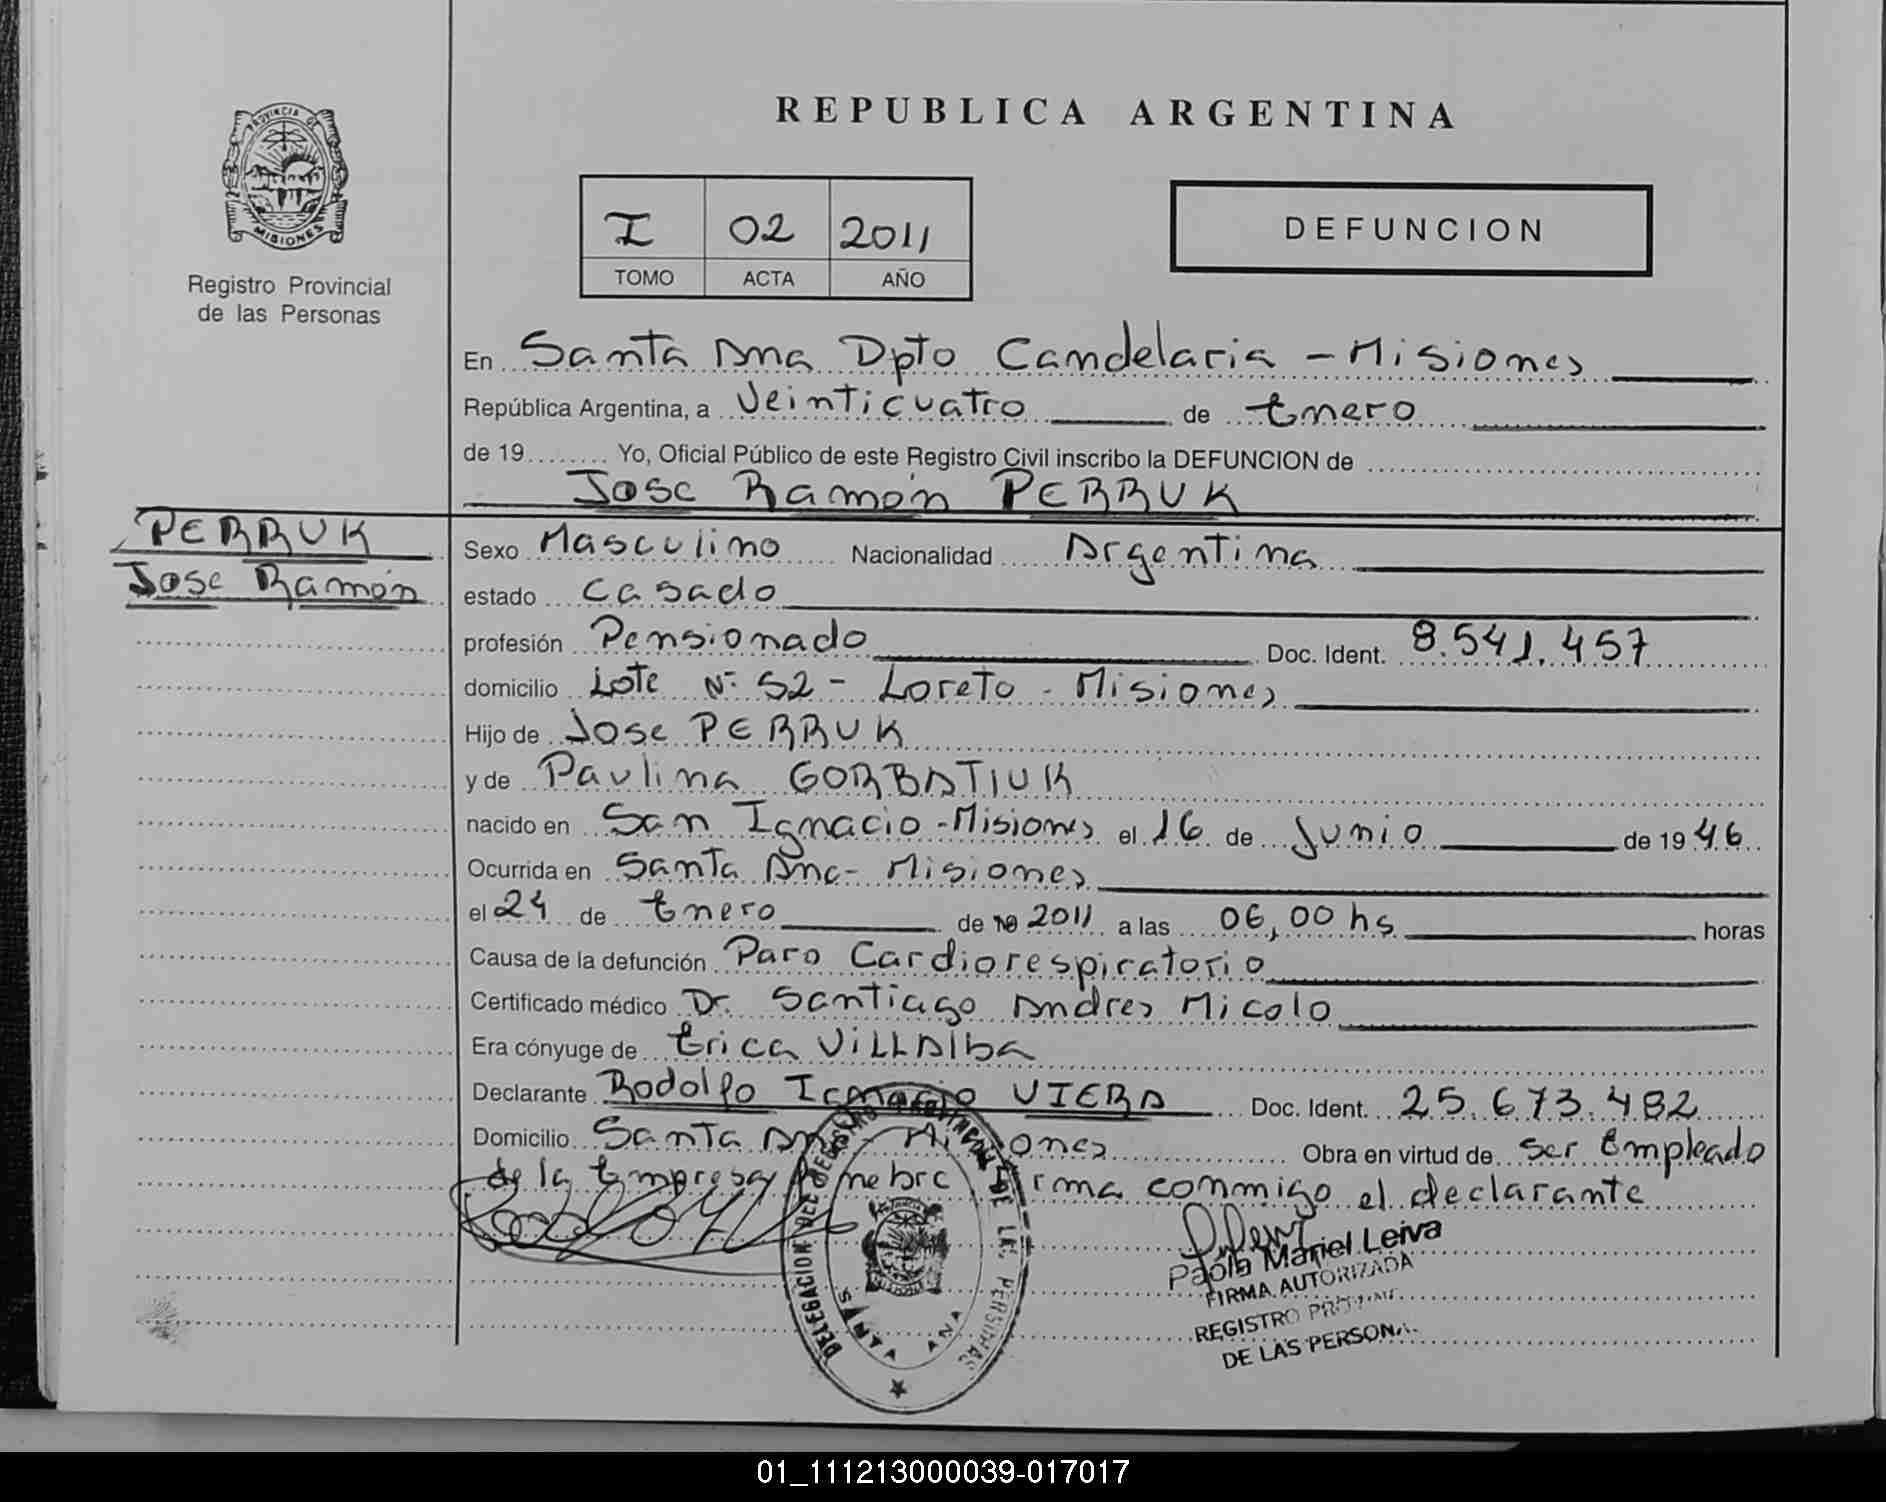 PROVINCIA DE
MISIONES
Registro Provincial
de las Personas
REPUBLICA ARGENTINA
I 02 2011
TOMO ACTA AÑO
DEFUNCION
En Santa Ana Dpto Candelaria - Misiones
República Argentina, a Veinticuatro de Enero
de 19 Yo, Oficial Público de este Registro Civil inscribo la DEFUNCION de
Jose Ramón PERRUK
PERRUK
Jose Ramón
Sexo Masculino Nacionalidad Argentina
estado Casado
profesión Pensionado Doc. Ident. 8.541.457
domicilio Lote Nº 52 - Loreto - Misiones
Hijo de Jose PERRUK
y de Paulina GORBATIUK
nacido en San Ignacio - Misiones el 16 de Junio de 19 46
Ocurrida en Santa Ana - Misiones
el 24 de Enero de 2011 a las 06,00 hs horas
Causa de la defunción Paro Cardiorespiratorio
Certificado médico Dr. Santiago Andres Micolo
Era cónyuge de Erica VILLAlba
Declarante Rodolfo Ignacio VIERA Doc. Ident. 25.673.482
Domicilio Santa Ana - Misiones Obra en virtud de ser Empleado
de la Empresa Funebre Firma conmigo el declarante
Paola Mariel Leiva
FIRMA AUTORIZADA
REGISTRO
DE LAS PERSONA
DELEGACION DEL REGISTRO PROVINCIAL DE LAS PERSONAS
SANTA ANA
01_111213000039-017017